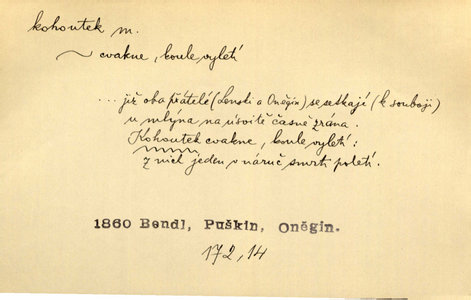 kohoutek m.
~ cvakne, koule vyletí
... již oba přátelé (Lenski a Oněgin) se setkají (k souboji)
u mlýna na úsvitě časně zrána.
Kohoutek cvakne, koule vyletí:
z nich jeden v náruč smrti poletí.
1860 Bendl, Puškin, Oněgin.
172, 14